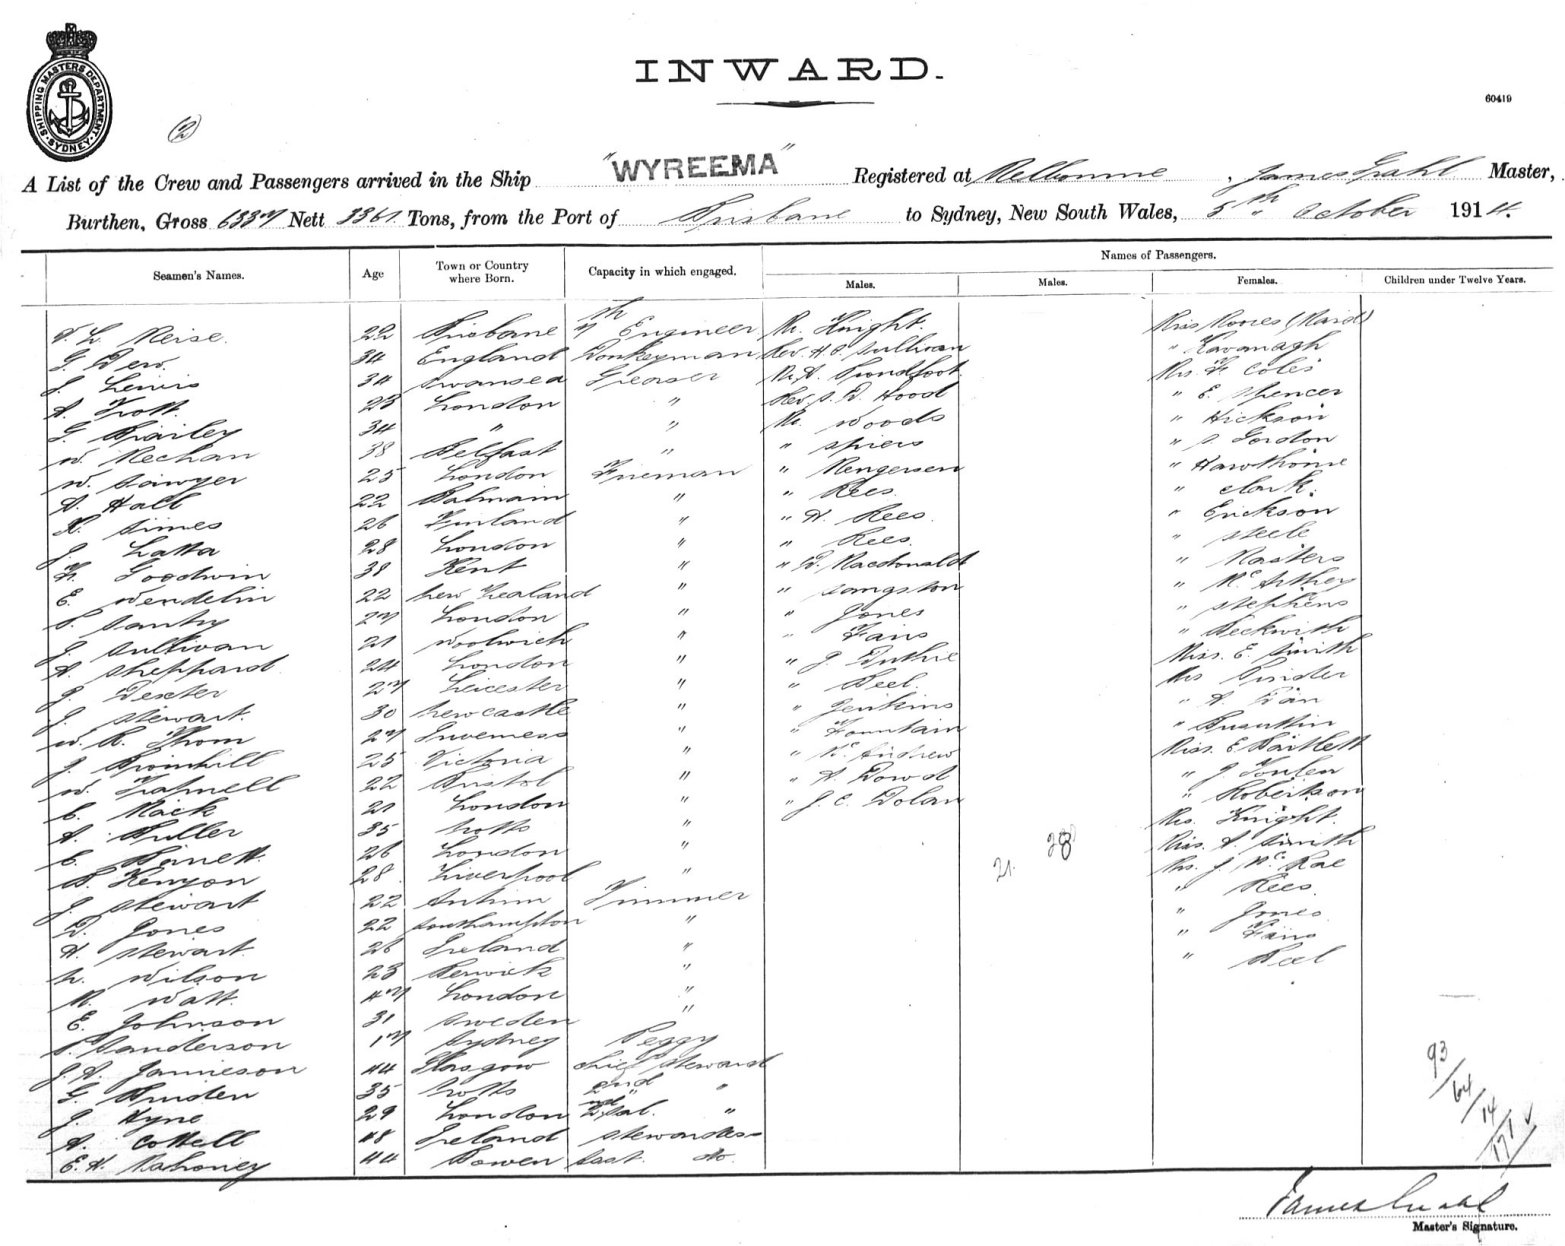 INWARD.
SHIPPING MASTERS DEPARTMENT
SYDNEY
60419
(2)
A List of the Crew and Passengers arrived in the Ship "WYREEMA" Registered at Melbourne, James Grahl Master,
Burthen, Gross 6337 Nett 3361 Tons, from the Port of Brisbane to Sydney, New South Wales, 5th October 1914.
Seamen's Names. Age Town or Country where Born. Capacity in which engaged. Names of Passengers.
Males. Males. Females. Children under Twelve Years.
22 Brisbane 7th Engineer Mr. Knight. Miss Moores (Maid)
G. Dew. 34 England Donkeyman Rev. H. Sullivan " Kavanagh
J. Lewis 34 Swansea Greaser Mr. A. Mrs. F. Coles
A. Trott. 23 London " Rev. S. D. Hood " E. Spencer
G. Brailey 34 " " Mr. Woods " Hickson
W. Meehan 38 Belfast " " Spiers " S. Gordon
W. Sawyer 25 London Fireman " Mengersen " Hawthorne
A. Hall 22 Balmain " " Rees. " Clark.
Simes 26 Finland " " A. Rees. " Erickson
J. Latta 28 London " " Rees. " Steele
F. Goodwin 38 Kent " " D. Macdonald " Masters
E. Wendelin 22 New Zealand " " Langston " McArthey
Santry 27 London " " Jones " Stephens
J. Sullivan 21 Woolwich " " Fains " Beckwith
A. Sheppard 24 London " " J. Duthie Miss. E. Smith
J. Dexter 27 Leicester " " Peel. Mrs
J. Stewart. 30 Newcastle " " Jenkins " A.
W. R. Thom 27 Inverness " " Fountain "
J. Bromhill 25 Victoria " " McAndrew Miss. E. Bartlett
W. Trapnell 22 Bristol " " A. Dowd " J.
C. Mack 21 London " " J. C. Dolan " Robertson
A. Buller 35 Notts " Mrs. Knight.
C. 26 London " Miss. A. Smith
B. Kenyon 28 Liverpool " 21. 28 Mrs. J. McRae
J. Stewart 22 Antrim Trimmer " Rees.
D. Jones 22 Southampton " " Jones
A. Stewart 26 Ireland " " Fains
N. Wilson 23 Berwick " " Peel
M. Watt. 47 London "
E. Johnson 31 Sweden "
Sanderson 17 Sydney Peggy
J. A. Jamieson 44 Glasgow Chief Steward
G. 35 Notts 2nd "
J. Hyne 29 London 2nd Sal. "
A. Cottell 48 Ireland Stewardess
E. H. Mahoney 44 Bowen Asst. do.
93/64/14/171
James Grahl
Master's Signature.